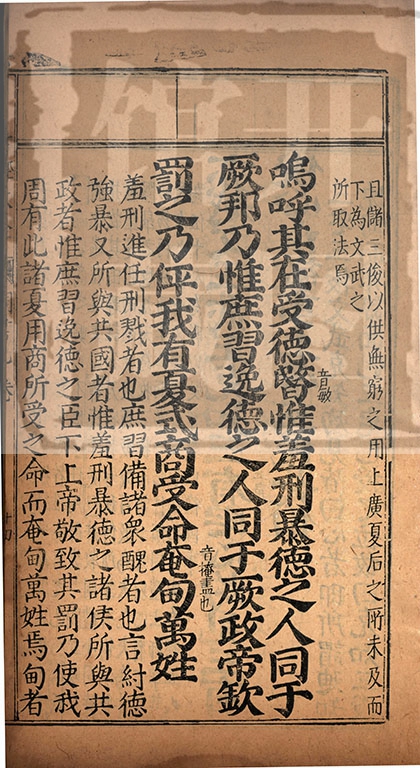 且儲三俊以供無窮之用上廣夏后之所未及而
下為文武之
所取法焉
嗚呼其在受德暋惟羞刑暴德之人同于
音敏
厥邦乃惟庶習逸德之人同于厥政帝欽
罰之乃伻我有夏式商受命奄甸萬姓
音揜盡也
羞刑進任刑戮者也庶習備諸衆醜者也言紂德
強暴又所與共國者惟羞刑暴德之諸侯所與共
政者惟庶習逸德之臣下上帝敬致其罰乃使我
周有此諸夏用商所受之命而奄甸萬姓焉甸者